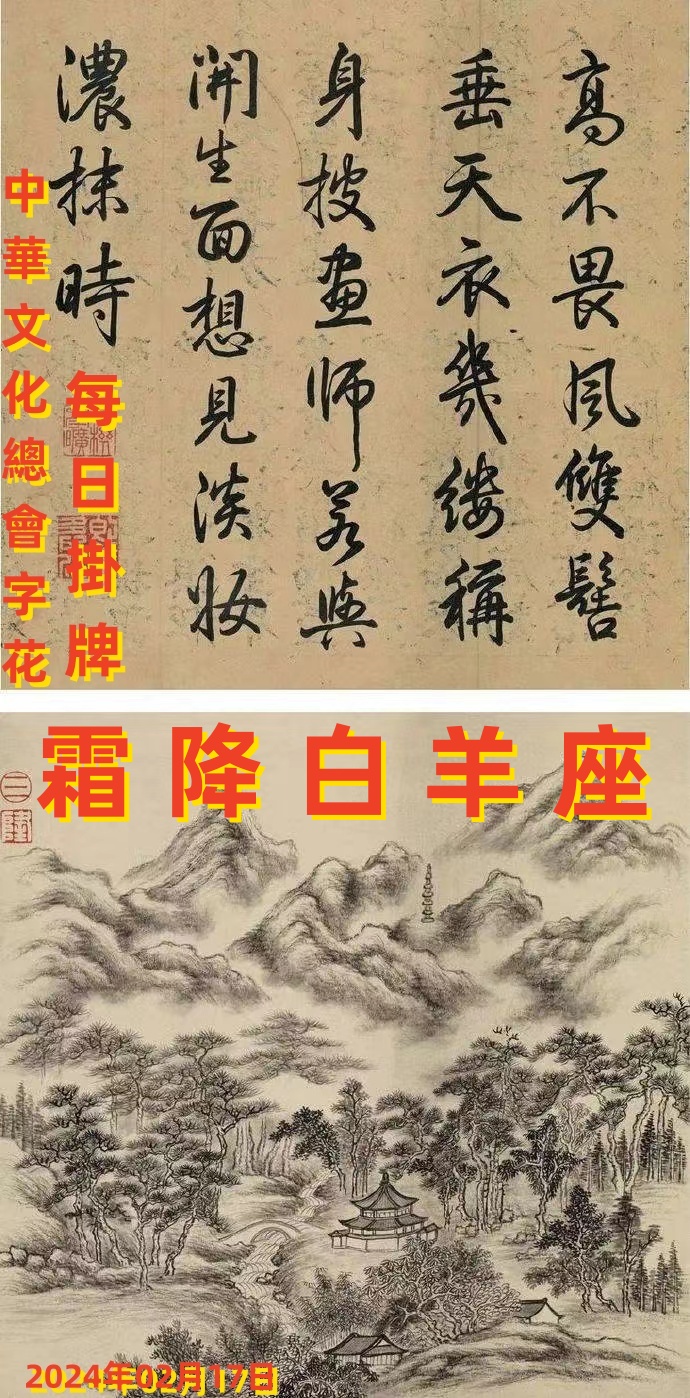 高不畏風雙髻
垂天衣幾縷稱
身披畫師若與
開生面想見淡妝
濃抹時
中華文化總會字花
每日掛牌
霜降白羊座
2024年02月17日